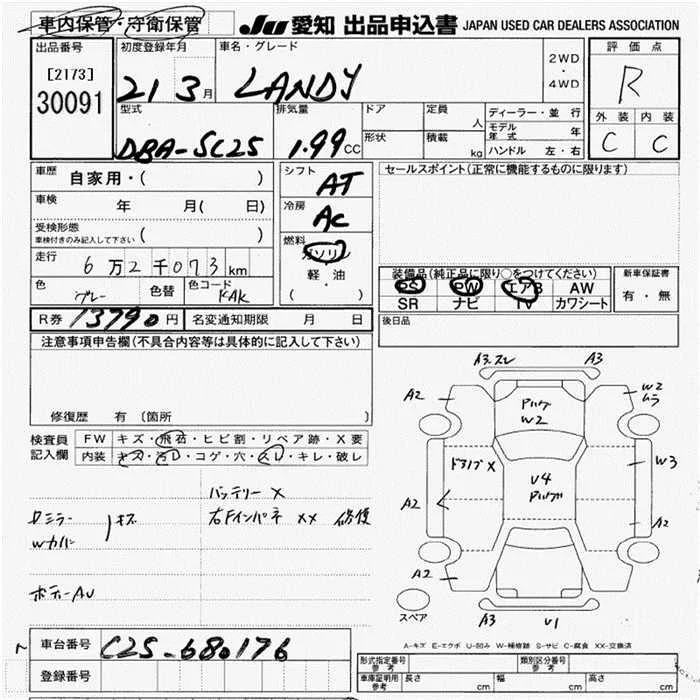 車内保管・守衛保管
JU 愛知 出品申込書 JAPAN USED CAR DEALERS ASSOCIATION
出品番号 [2173] 30091
初度登録年月 21 3月
車名・グレード LANDY
2WD・4WD
評価点 R
外装 C 内装 C
型式 DBA-SC25
排気量 1.99CC
ドア 形状
定員 人 積載 kg
ディーラー・並行
モデル年式 年
ハンドル 左・右
車歴 自家用・( )
車検 年 月( 日)
受検形態 車検付きのみ記入して下さい ( )
走行 6万2千073km
色 グレー 色替 色コード KAK
シフト AT
冷房 AC
燃料 ガソリン 軽・油 ( ・ )
セールスポイント(正常に機能するものに限ります)
装備品(純正品に限り○をつけてください)
PS PW エアB AW
SR ナビ TV カワシート
新車保証書 有・無
R券 13790円 名変通知期限 月 日
後日品
注意事項申告欄(不具合内容等は具体的に記入して下さい)
修復歴 有 (箇所 )
検査員記入欄
FW キズ・飛石・ヒビ割・リペア跡・X要
内装 キズ・汚レ・コゲ・穴・スレ・キレ・破レ
バッテリーX
右Fインパネ XX 修復
ミラー
Wカバー キズ
ボデーAU
A3.スレ
A3
A2
W2 ムラ
W2
ドライブX
U4
W3
A2
A2
A2
A3
U1
スペア
A-キズ E-エクボ U-凹み W-補修跡 S-サビ C-腐食 XX-交換済
車台番号 C25-680176
登録番号
形式指定番号 参考 類別区分番号 参考
車庫証明用 参考 長さ cm 幅 cm 高さ cm